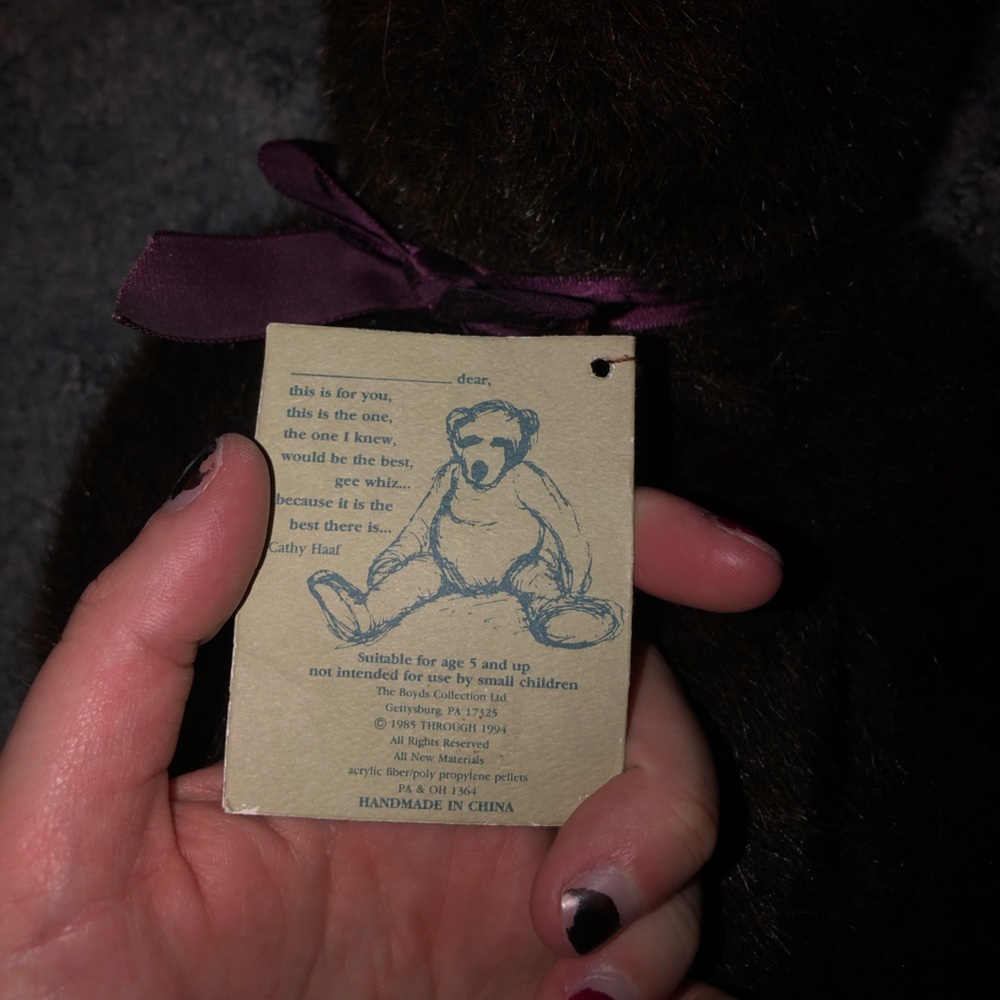 _______________ dear,
this is for you,
this is the one,
the one I knew,
would be the best,
gee whiz...
because it is the
best there is...
Cathy Haaf
Suitable for age 5 and up
not intended for use by small children
The Boyds Collection Ltd
Gettysburg, PA 17325
© 1985 THROUGH 1994
All Rights Reserved
All New Materials
acrylic fiber/poly propylene pellets
PA & OH 1364
HANDMADE IN CHINA